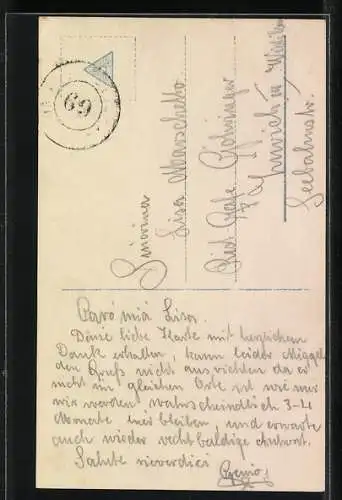 69
Signorina
Lisa Marschetto
Zürich III
Seebahnstr.
Caro mia Lisa.
Deine liebe Karte mit herzlichem
Dank erhalten, kann leider
den Gruß nicht ausrichten da er
nicht im gleichen Orte ist wie wir
wir werden wahrscheindlich 3-4
Monate hier bleiben, und erwarte
auch wieder recht baldige Antwort.
Salute